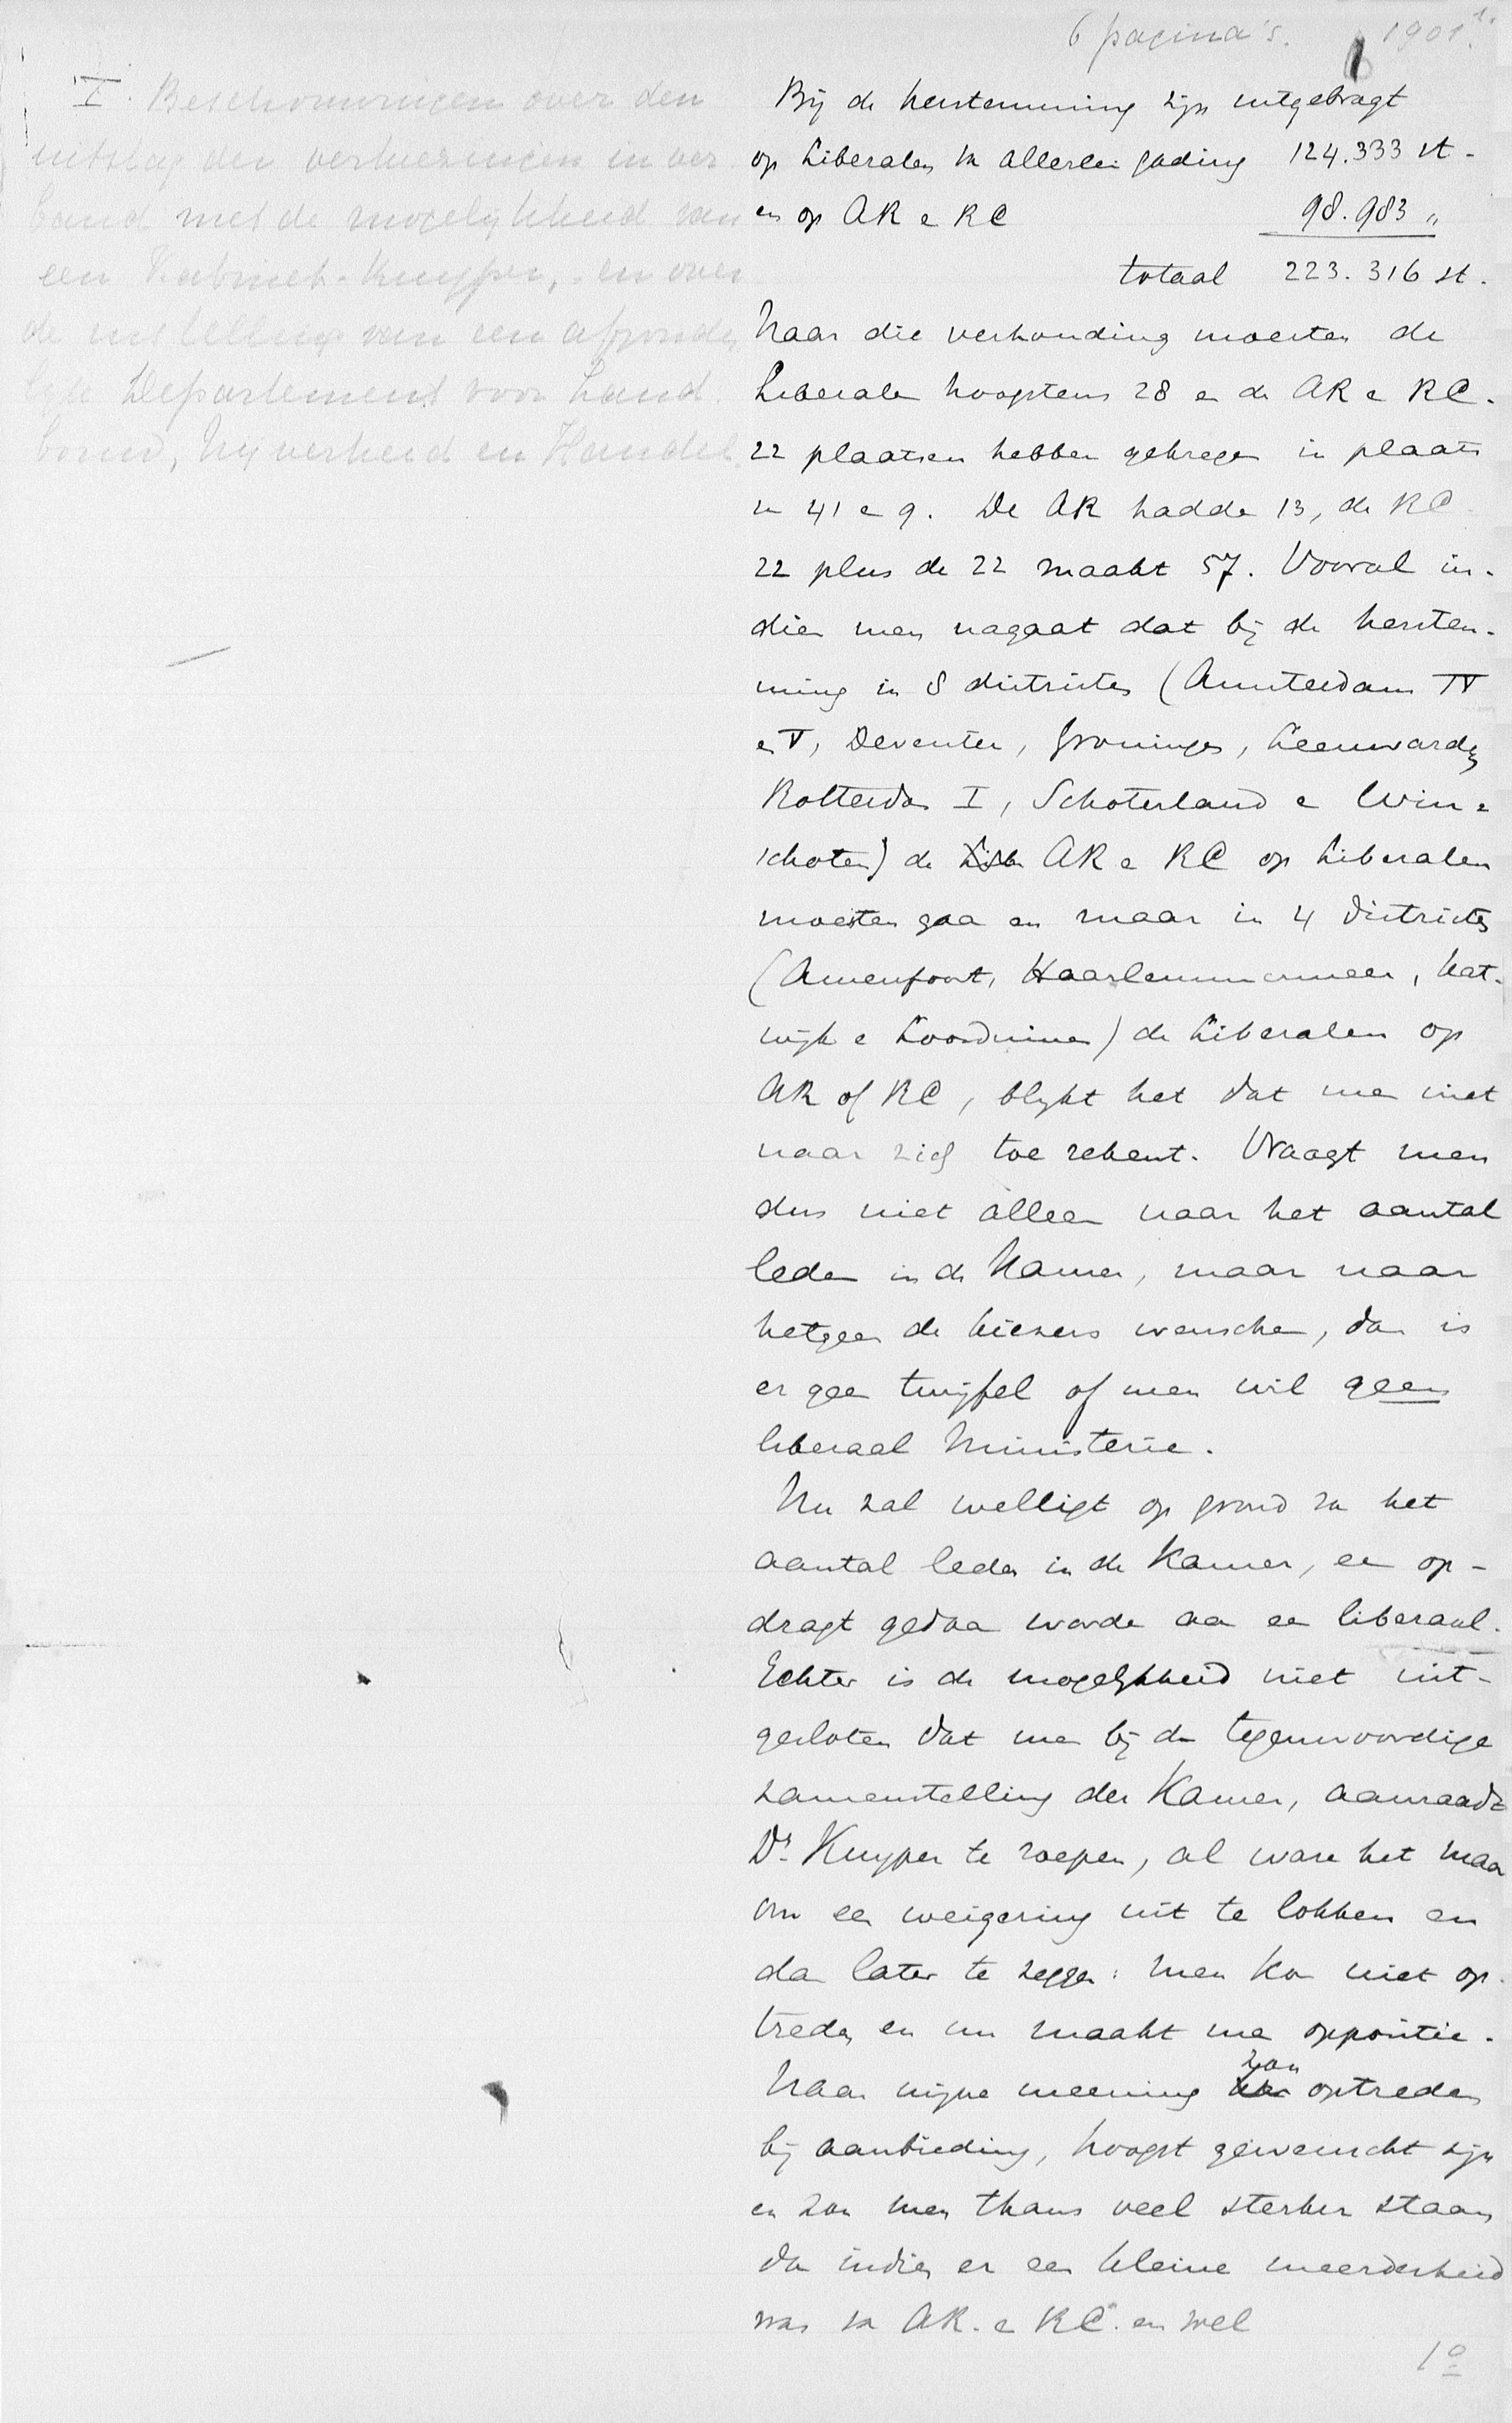 6 pagina's. 1901.
I. Beschouwingen over den
uitslag der verkiezingen in ver
band met de mogelijkheid van
een Kabinet-Kuyper, en over
de instelling van een afzonder
lijk Departement voor Land
bouw, Nijverheid en Handel.
Bij de herstemming zijn uitgebragt
op Liberalen van allerlei gading 124.333 st.
en op AR en RC 98.983 "
totaal 223.316 st.
Naar die verhouding moesten de
Liberalen hoogstens 28 en de AR en RC.
22 plaatsen hebben gekregen in plaats
van 41 en 9. De AR hadden 13, de RC
22 plus de 22 maakt 57. Vooral in-
dien men nagaat dat bij de herstem-
ming in 8 districten (Amsterdam IV
en V, Deventer, Groningen, Leeuwarden
Rotterdam I, Schoterland en Win-
schoten) de Lib AR en RC op Liberalen
moesten gaan en maar in 4 districten
(Amersfoort, Haarlemmermeer, Kat-
wijk en Loosduinen) de Liberalen op
AR of RC, blijkt het dat men niet
naar zich toe rekent. Vraagt men
dus niet alleen naar het aantal
leden in de Kamer, maar naar
hetgeen de kiezers wenschen, dan is
er geen twijfel of men wil geen
liberaal Ministerie.
Nu zal welligt op grond van het
aantal leden in de Kamer, een op-
dragt gedaan worden aan een liberaal.
Echter is de mogelijkheid niet uit-
gesloten dat men bij de tegenwoordige
zamenstelling der Kamer, aanraadt
Dr Kuyper te roepen, al ware het maar
om een weigering uit te lokken en
dan later te zeggen: men kon niet op-
treden en nu maakt men oppositie.
Naar mijne meening zou optreden
bij aanbieding, hoogst gewenscht zijn
en zou men thans veel sterker staan
dan indien er een kleine meerderheid
was van AR. en RC. en wel
1o